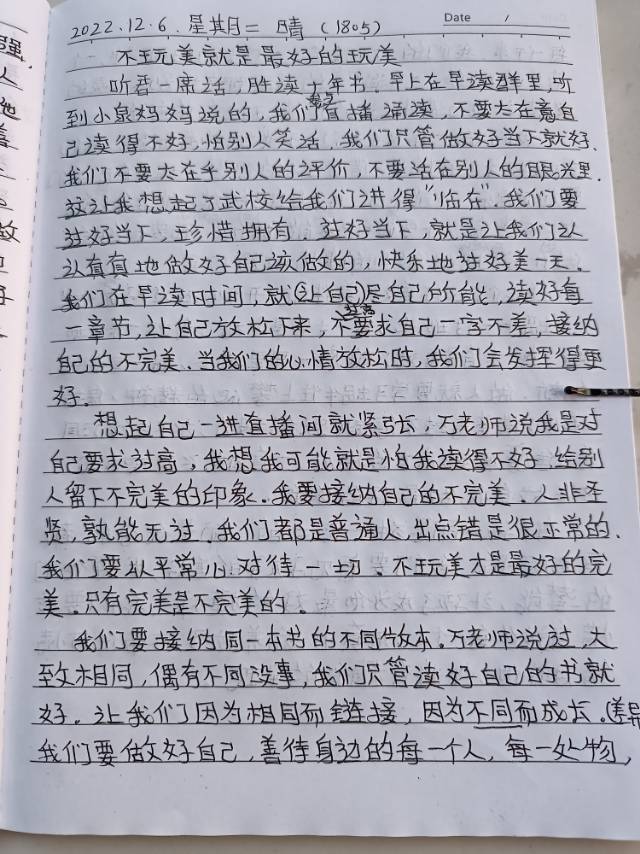 2022.12.6 星期二 晴 (1805)
Date /
不玩美就是最好的玩美
听君一席话,胜读十年书。早上在早读群里,听
到小泉妈妈说的,我们直播诵读,不要太在意自
己读得不好,怕别人笑话,我们只管做好当下就好.
我们不要太在乎别人的评价,不要活在别人的眼光里.
这让我想起了武校给我们讲得"临在",我们要
过好当下,珍惜拥有.过好当下,就是让我们认
认真真地做好自己该做的,快乐地过好美一天.
我们在早读时间,就让自己尽自己所能,读好每
一章节,让自己放松下来,不要求自己一字不差,接纳
自己的不完美.当我们的心情放松时,我们会发挥得更
好.
想起自己一进直播间就紧张,万老师说我是对
自己要求过高,我想我可能就是怕我读得不好,给别
人留下不完美的印象.我要接纳自己的不完美.人非圣
贤,孰能无过.我们都是普通人,出点错是很正常的.
我们要以平常心对待一切.不玩美才是最好的完
美.只有完美是不完美的.
我们要接纳同一本书的不同版本.万老师说过,大
致相同,偶有不同没事,我们只管读好自己的书就
好.让我们因为相同而链接,因为不同而成长.(差异
我们要做好自己,善待身边的每一个人,每一处物,